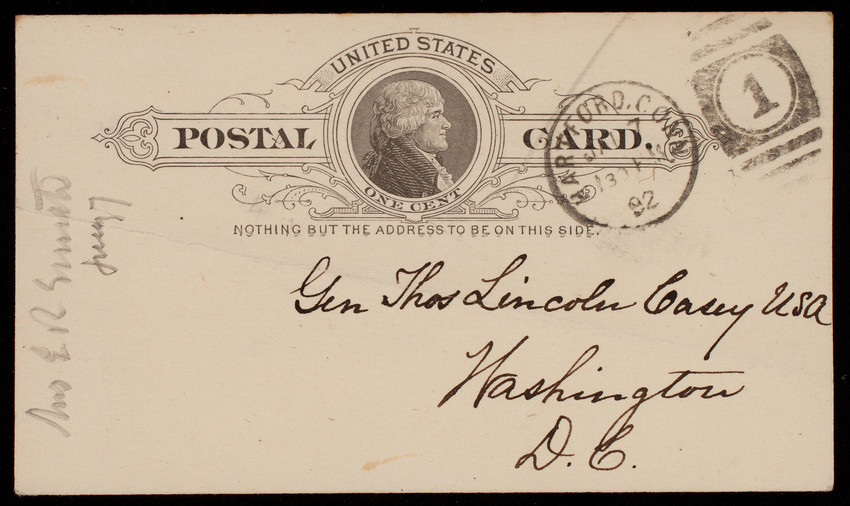 UNITED STATES
POSTAL CARD.
ONE CENT
NOTHING BUT THE ADDRESS TO BE ON THIS SIDE.
HARTFORD, CONN
7
92
1
Gen Thos Lincoln Casey USA
Washington
D. C.
E R
7